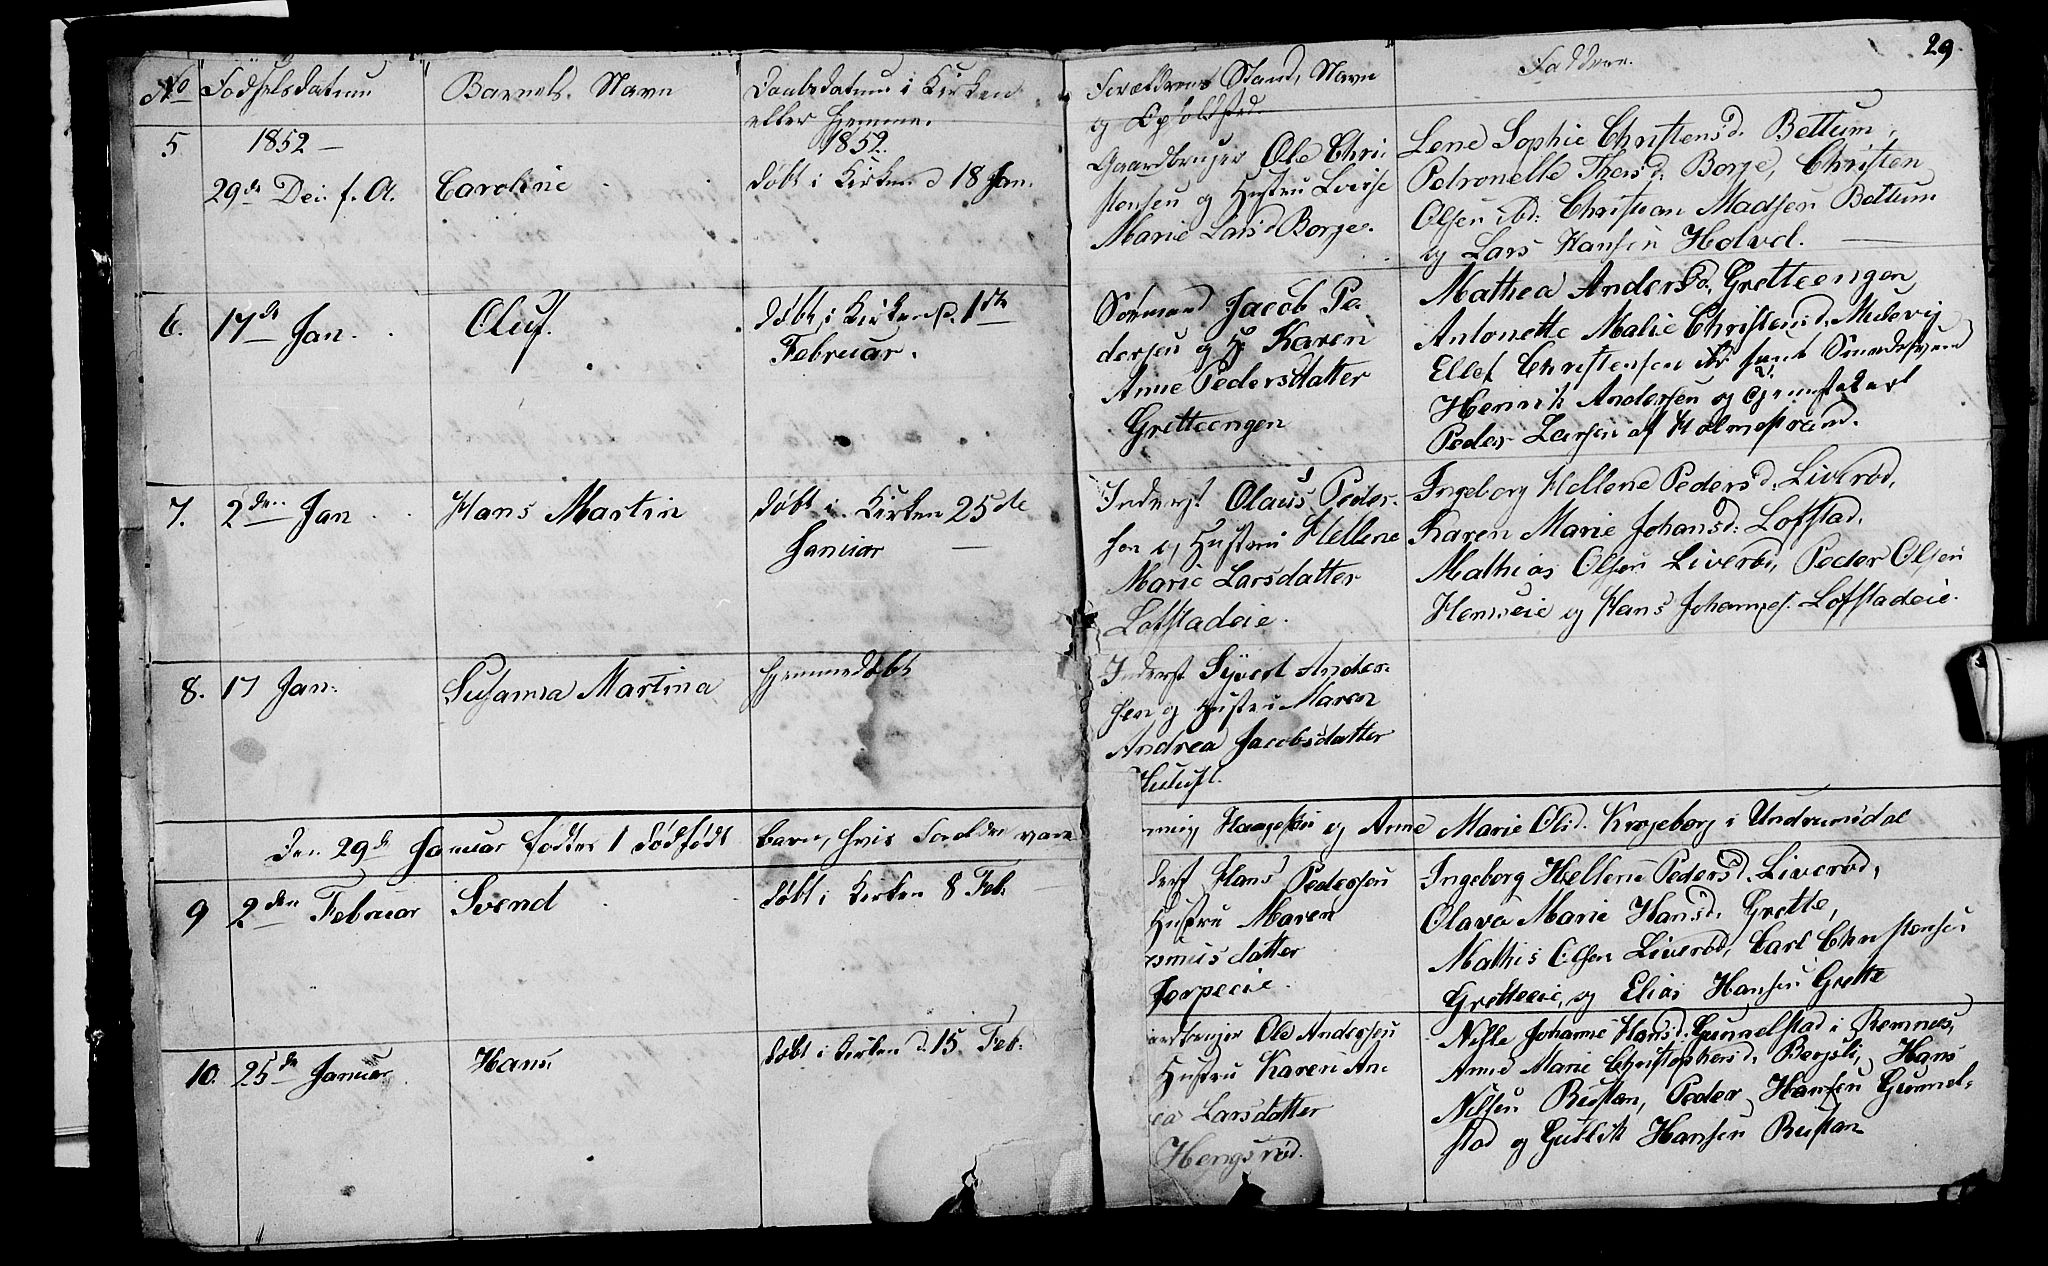 29.
No Fødselsdatum Barnets Navn Daabsdatum i Kirken Forældrenes Stand, Navn Faddere.
eller Hjemme. og Opholdsted.
5 1852 — 1852.
29de Dec. f. A. Caroline døbt i Kirken d 18 Jan.
Gaardbruger Ole Chri
stensen og Hustru Lovise
Marie Larsd Borge.
Lene Sophie Christensd. Bettum,
Petronelle Thersd. Borge, Christen
Olsen ibd: Christian Madsen Bettum
og Lars Hansen Holvel.
6. 17de Jan. Oluf. døbt i Kirken d. 1ste
Februar.
Sømand Jacob Pe
dersen og H. Karen
Anne Pedersdatter
Gretteengen
Mathea Andersd. Gretteengen
Antonette Malie Christensd. Mulevig
Ellef Christensen ibd: samt Smedesvend
Henrik Andersen og
Peder Larsen af Holmestrand.
7. 2den Jan Hans Martin døbt i Kirken 25de
Januar —
Inderst Olaus Peder-
sen og Hustru Hellene
Marie Larsdatter
Lofstadeie.
Ingeborg Hellene Pedersd. Liverød,
Karen Marie Johansd: Lofstad,
Mathias Olsen Liverød, Peder Olsen
Hemseie og Hans Johannes. Lofstadeie.
8. 17 Jan: Susanna Martina Hjemmedøbt
Inderst Syvert Ander-
sen og Hustru Maren
Andrea Jacobsdatter
Den 29de Januar fødtes 1 dødfødt barn, hvis Forældre vare
Haagensen og Anne Marie Olsd. Krogeborg i Undrumsdal
9 2den Februar Svend døbt i Kirken 8 Feb.
derst Hans Pedersen
Hustru Maren
smusdatter
Jorpeeie.
Ingeborg Hellene Pedersd. Liverød,
Olava Marie Hansd. Grette,
Mathis Olsen Liverød, Carl Christensen
Gretteeie, og Elias Hansen Grette
10. 25de Januar Hans døbt i Kirken d. 15 Feb.
ardbruger Ole Andersen
Hustru Karen An-
ea Larsdatter
Hengsrød.
Nille Johanne Hansd. Gunnelstad i Ramnes,
Anne Marie Christophersd. Bergsli, Hans
Nilsen Rustan, Peder Hansen Gunnel-
stad og Gullik Hansen Rustan